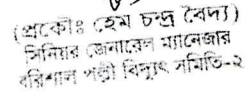 (প্রকৌঃ হেম চন্দ্র বৈদ্য)
সিনিয়র জেনারেল ম্যানেজার
বরিশাল পল্লী বিদ্যুৎ সমিতি-২